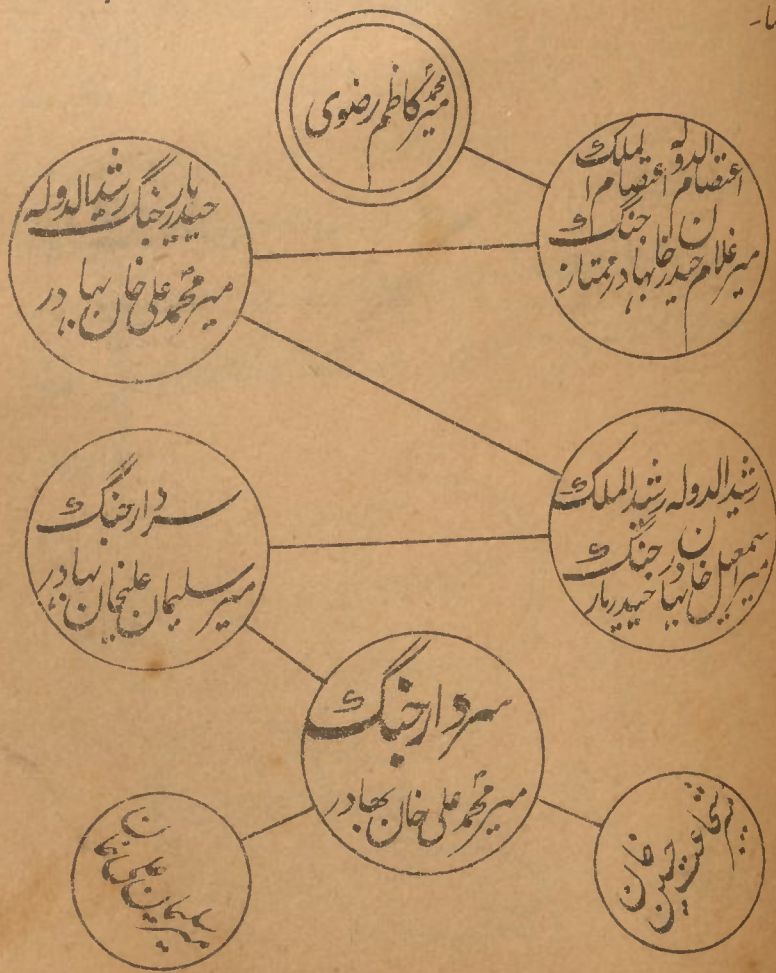 میر محمد کاظم رضوی
اعتصام الدولہ اعتصام الملک
میر غلام حیدر خان بہادر ممتاز جنگ
حیدر یار جنگ رشید الدولہ
میر محمد علی خان بہادر
رشید الدولہ رشید الملک
میر اسمعیل خان بہادر حیدر یار جنگ
سردار جنگ
میر سلیمان علیخان بہادر
سردار جنگ
میر محمد علی خان بھادر
شجاعت حسین خان
میر سلیمان علی خان